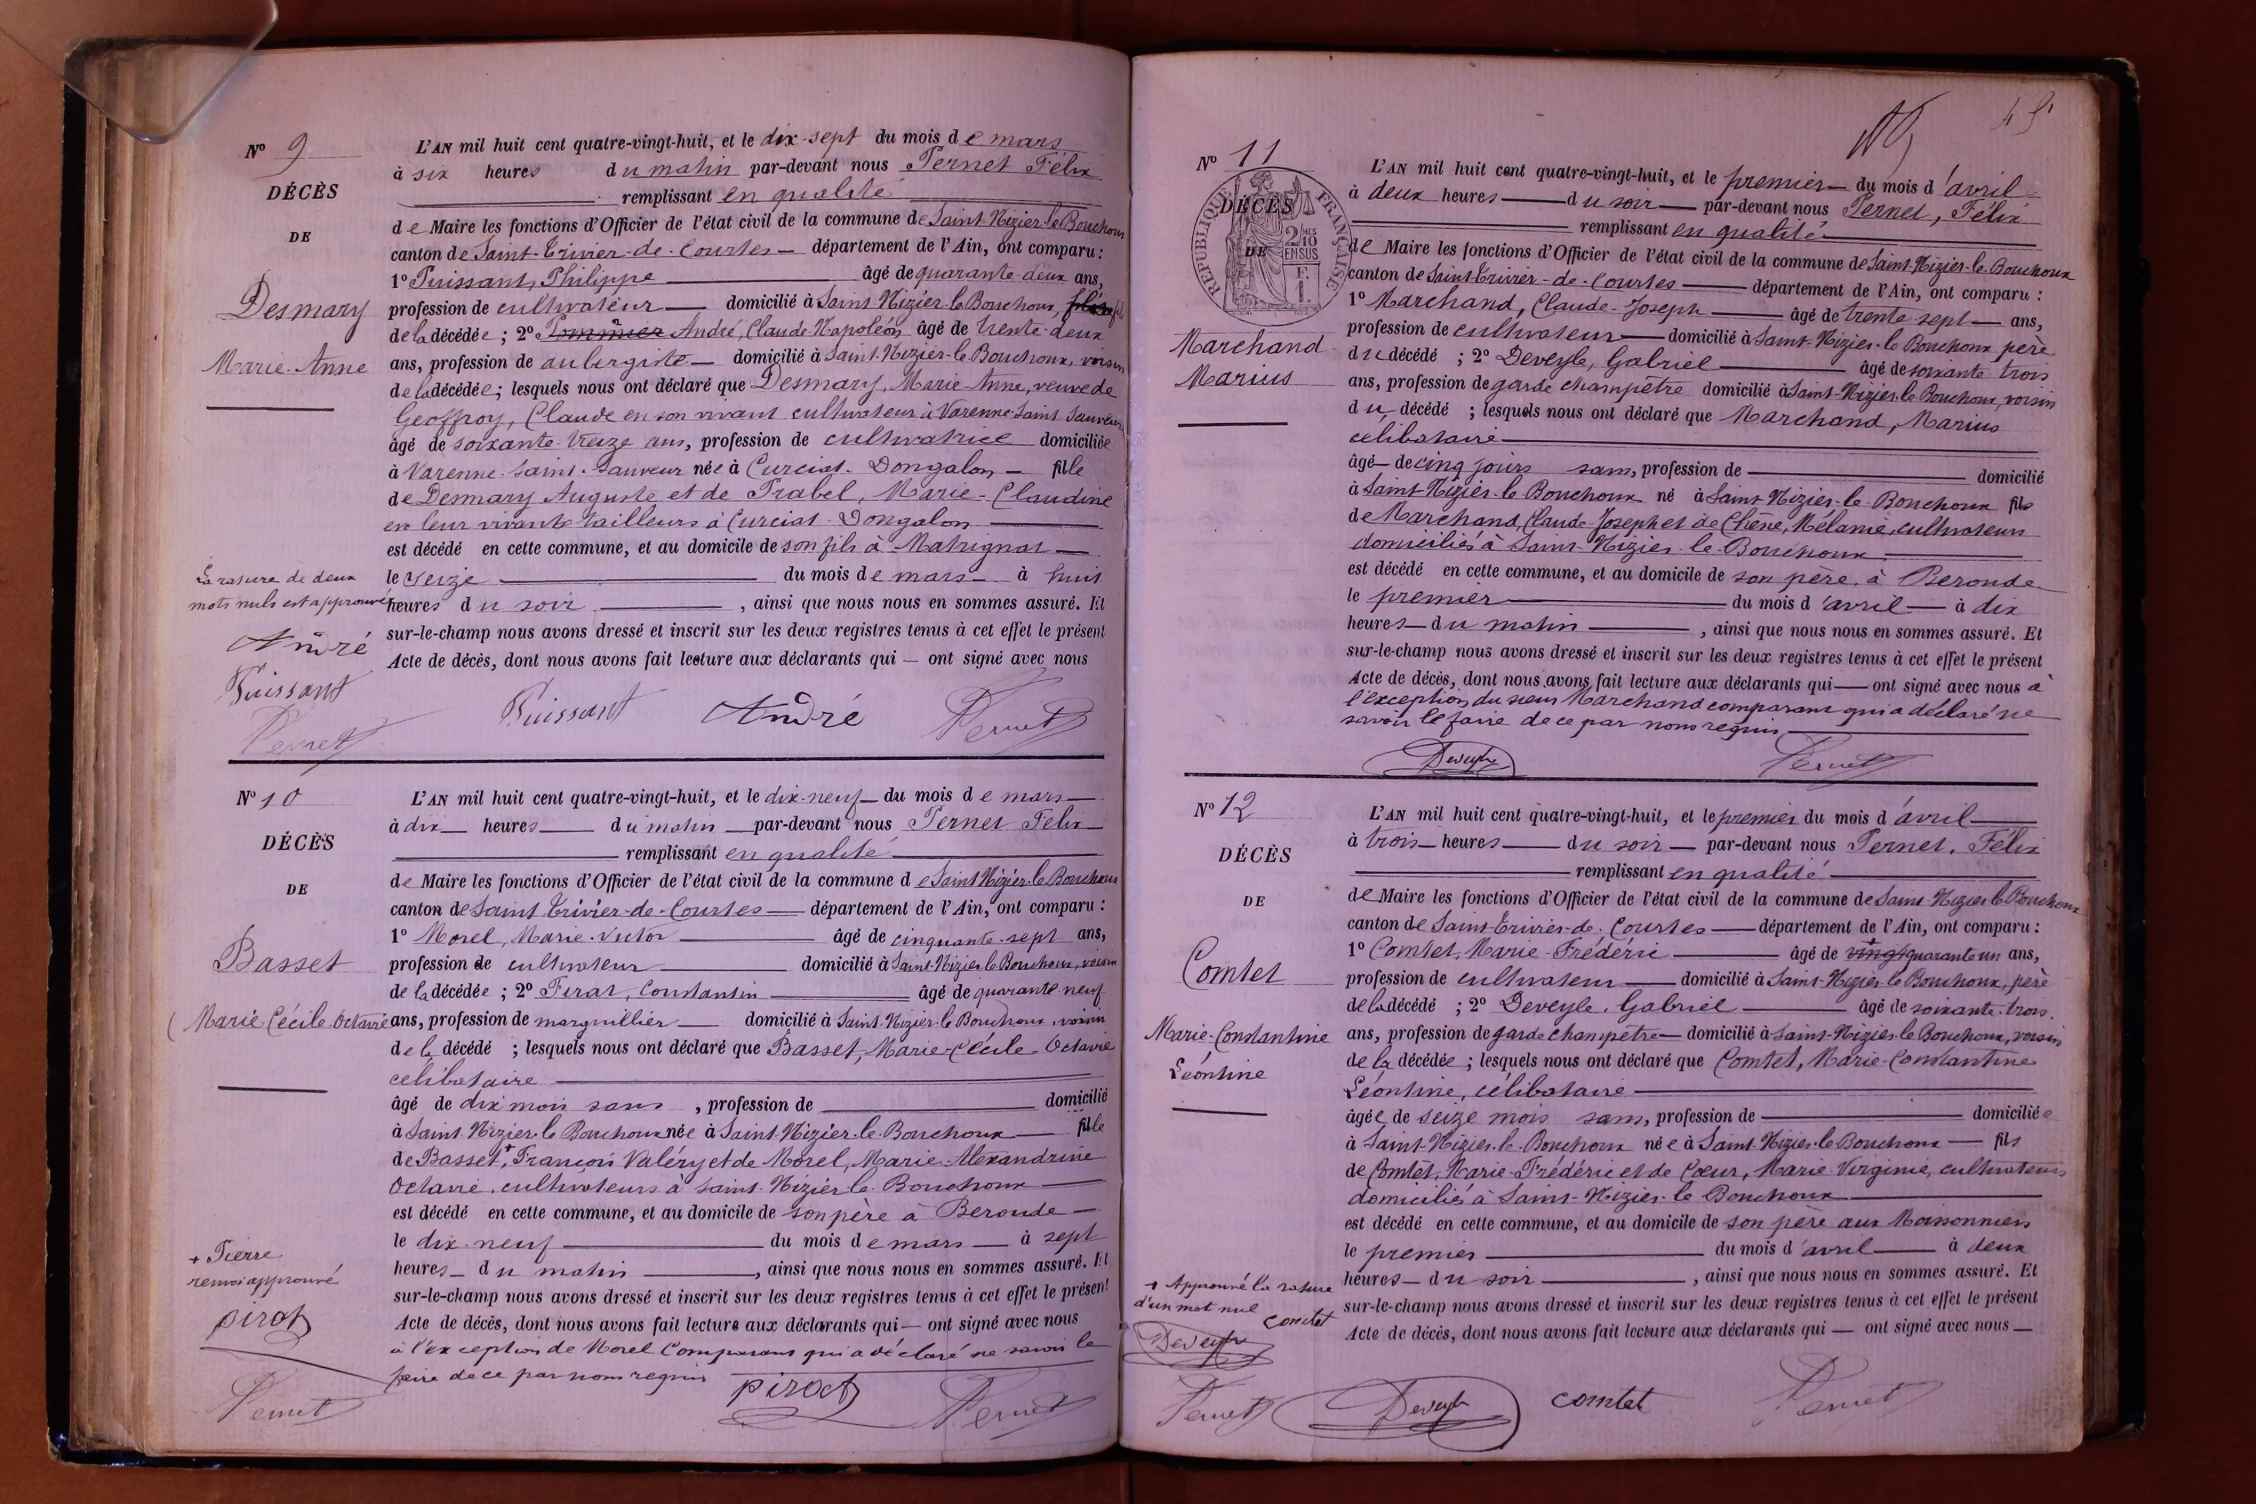 Nº 9
DÉCÈS
DE
Desmary
Marie-Anne
L'AN mil huit cent quatre-vingt-huit, et le dix-sept du mois de mars
à six heures du matin par-devant nous Pernet Félix
remplissant en qualité
de Maire les fonctions d'Officier de l'état civil de la commune de Saint-Nizier-le-Bouchoux
canton de Saint-Trivier-de-Courtes département de l'Ain, ont comparu :
1º Puissant, Philippe âgé de quarante-deux ans,
profession de cultivateur domicilié à Saint-Nizier-le-Bouchoux, fils
de la décédée ; 2º André, Claude Napoléon âgé de trente-deux
ans, profession de aubergiste domicilié à Saint-Nizier-le-Bouchoux, voisin
de la décédée ; lesquels nous ont déclaré que Desmary, Marie-Anne, veuve de
Geoffroy, Claude en son vivant cultivateur à Varenne-Saint-Sauveur
âgé de soixante-treize ans, profession de cultivatrice domiciliée
à Varenne-Saint-Sauveur née à Curciat-Dongalon fille
de Desmary Auguste et de Trabel, Marie-Claudine
en leur vivants tailleurs à Curciat-Dongalon
est décédé en cette commune, et au domicile de son fils à Matrignat
le seize du mois de mars à huit
heures du soir, ainsi que nous nous en sommes assuré. Et
sur-le-champ nous avons dressé et inscrit sur les deux registres tenus à cet effet le présent
Acte de décès, dont nous avons fait lecture aux déclarants qui ont signé avec nous
La rature de deux
mots nuls est approuvée
André
Puissant
Pernet
Puissant André Pernet
Nº 10
DÉCÈS
DE
Basset
Marie Cécile Octavie
L'AN mil huit cent quatre-vingt-huit, et le dix-neuf du mois de mars
à dix heures du matin par-devant nous Pernet Félix
remplissant en qualité
de Maire les fonctions d'Officier de l'état civil de la commune de Saint-Nizier-le-Bouchoux
canton de Saint Trivier-de-Courtes département de l'Ain, ont comparu :
1º Morel, Marie-Victor âgé de cinquante-sept ans,
profession de cultivateur domicilié à Saint-Nizier-le-Bouchoux, voisin
de la décédée ; 2º Pirat, Constantin âgé de quarante-neuf
ans, profession de marguillier domicilié à Saint-Nizier-le-Bouchoux, voisin
de la décédé ; lesquels nous ont déclaré que Basset, Marie-Cécile-Octavie
célibataire
âgé de dix mois sans, profession de domicilié
à Saint-Nizier-le-Bouchoux née à Saint-Nizier-le-Bouchoux fille
de Basset, + François Valéry et de Morel, Marie-Alexandrine
Octavie, cultivateurs à Saint-Nizier-le-Bouchoux
est décédé en cette commune, et au domicile de son père à Beronde
le dix-neuf du mois de mars à sept
heures du matin, ainsi que nous nous en sommes assuré. Et
sur-le-champ nous avons dressé et inscrit sur les deux registres tenus à cet effet le présent
Acte de décès, dont nous avons fait lecture aux déclarants qui ont signé avec nous
à l'exception de Morel Comparant qui a déclaré ne savoir le
faire de ce par nous requis
+ Pierre
renvoi approuvé
pirat
Pernet
pirat Pernet
45
Nº 11
DÉCÈS
DE
RÉPUBLIQUE FRANÇAISE
2/10 EN SUS
Marchand
Marius
L'AN mil huit cent quatre-vingt-huit, et le premier du mois d'avril
à deux heures du soir par-devant nous Pernet, Félix
remplissant en qualité
de Maire les fonctions d'Officier de l'état civil de la commune de Saint-Nizier-le-Bouchoux
canton de Saint-Trivier-de-Courtes département de l'Ain, ont comparu :
1º Marchand, Claude-Joseph âgé de trente sept ans,
profession de cultivateur domicilié à Saint-Nizier-le Bouchoux père
du décédé ; 2º Deveyle, Gabriel âgé de soixante trois
ans, profession de garde champêtre domicilié à Saint-Nizier-le Bouchoux, voisin
du décédé ; lesquels nous ont déclaré que Marchand, Marius
célibataire
âgé de cinq jours sans, profession de domicilié
à Saint-Nizier-le-Bouchoux né à Saint-Nizier-le-Bouchoux fils
de Marchand, Claude-Joseph et de Chêne, Mélanie, cultivateurs
domiciliés à Saint-Nizier-le-Bouchoux
est décédé en cette commune, et au domicile de son père, à Beronde
le premier du mois d'avril à dix
heures du matin, ainsi que nous nous en sommes assuré. Et
sur-le-champ nous avons dressé et inscrit sur les deux registres tenus à cet effet le présent
Acte de décès, dont nous avons fait lecture aux déclarants qui ont signé avec nous à
l'exception du sieur Marchand comparant qui a déclaré ne
savoir le faire de ce par nous requis
Deveyle Pernet
Nº 12
DÉCÈS
DE
Comtet
Marie-Constantine
Léontine
L'AN mil huit cent quatre-vingt-huit, et le premier du mois d'avril
à trois heures du soir par-devant nous Pernet, Félix
remplissant en qualité
de Maire les fonctions d'Officier de l'état civil de la commune de Saint-Nizier-le Bouchoux
canton de Saint-Trivier-de-Courtes département de l'Ain, ont comparu :
1º Comtet, Marie-Frédéric âgé de vingt quarante un ans,
profession de cultivateur domicilié à Saint-Nizier-le Bouchoux, père
de la décédé ; 2º Deveyle, Gabriel âgé de soixante-trois
ans, profession de garde champêtre domicilié à Saint-Nizier-le-Bouchoux, voisin
de la décédée ; lesquels nous ont déclaré que Comtet, Marie-Constantine
Léontine, célibataire
âgée de seize mois sans, profession de domiciliée
à Saint-Nizier-le-Bouchoux née à Saint-Nizier-le Bouchoux fils
de Comtet, Marie-Frédéric et de Cœur, Marie-Virginie, cultivateurs
domiciliés à Saint-Nizier-le Bouchoux
est décédé en cette commune, et au domicile de son père aux Moissonniers
le premier du mois d'avril à deux
heures du soir, ainsi que nous nous en sommes assuré. Et
sur-le-champ nous avons dressé et inscrit sur les deux registres tenus à cet effet le présent
Acte de décès, dont nous avons fait lecture aux déclarants qui ont signé avec nous
+ Approuvé la rature
d'un mot nul
comtet
Deveyle
Pernet Deveyle comtet Pernet